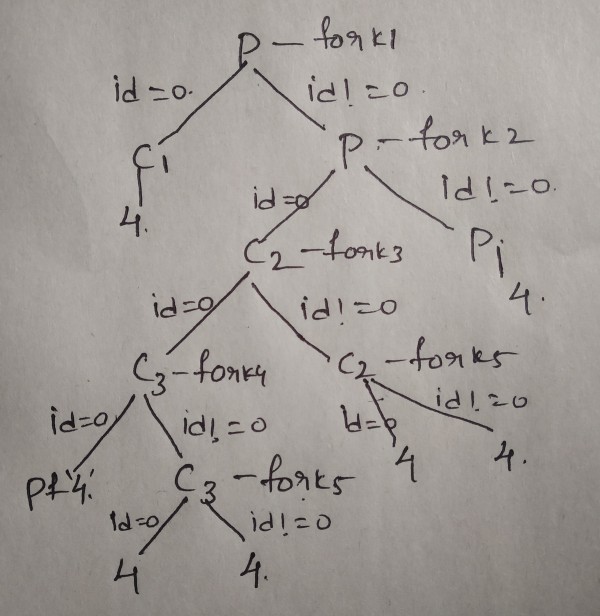 P - fork1
id=0. id!=0.
C1 P - fork2
4. id=0 id!=0.
C2 - fork3 Pj
4.
id=0 id!=0
C3 - fork4 C2 - fork5
id=0 id!=0 id=0 id!=0
4 4.
Pt '4'. C3 - fork5
id=0 id!=0
4 4.